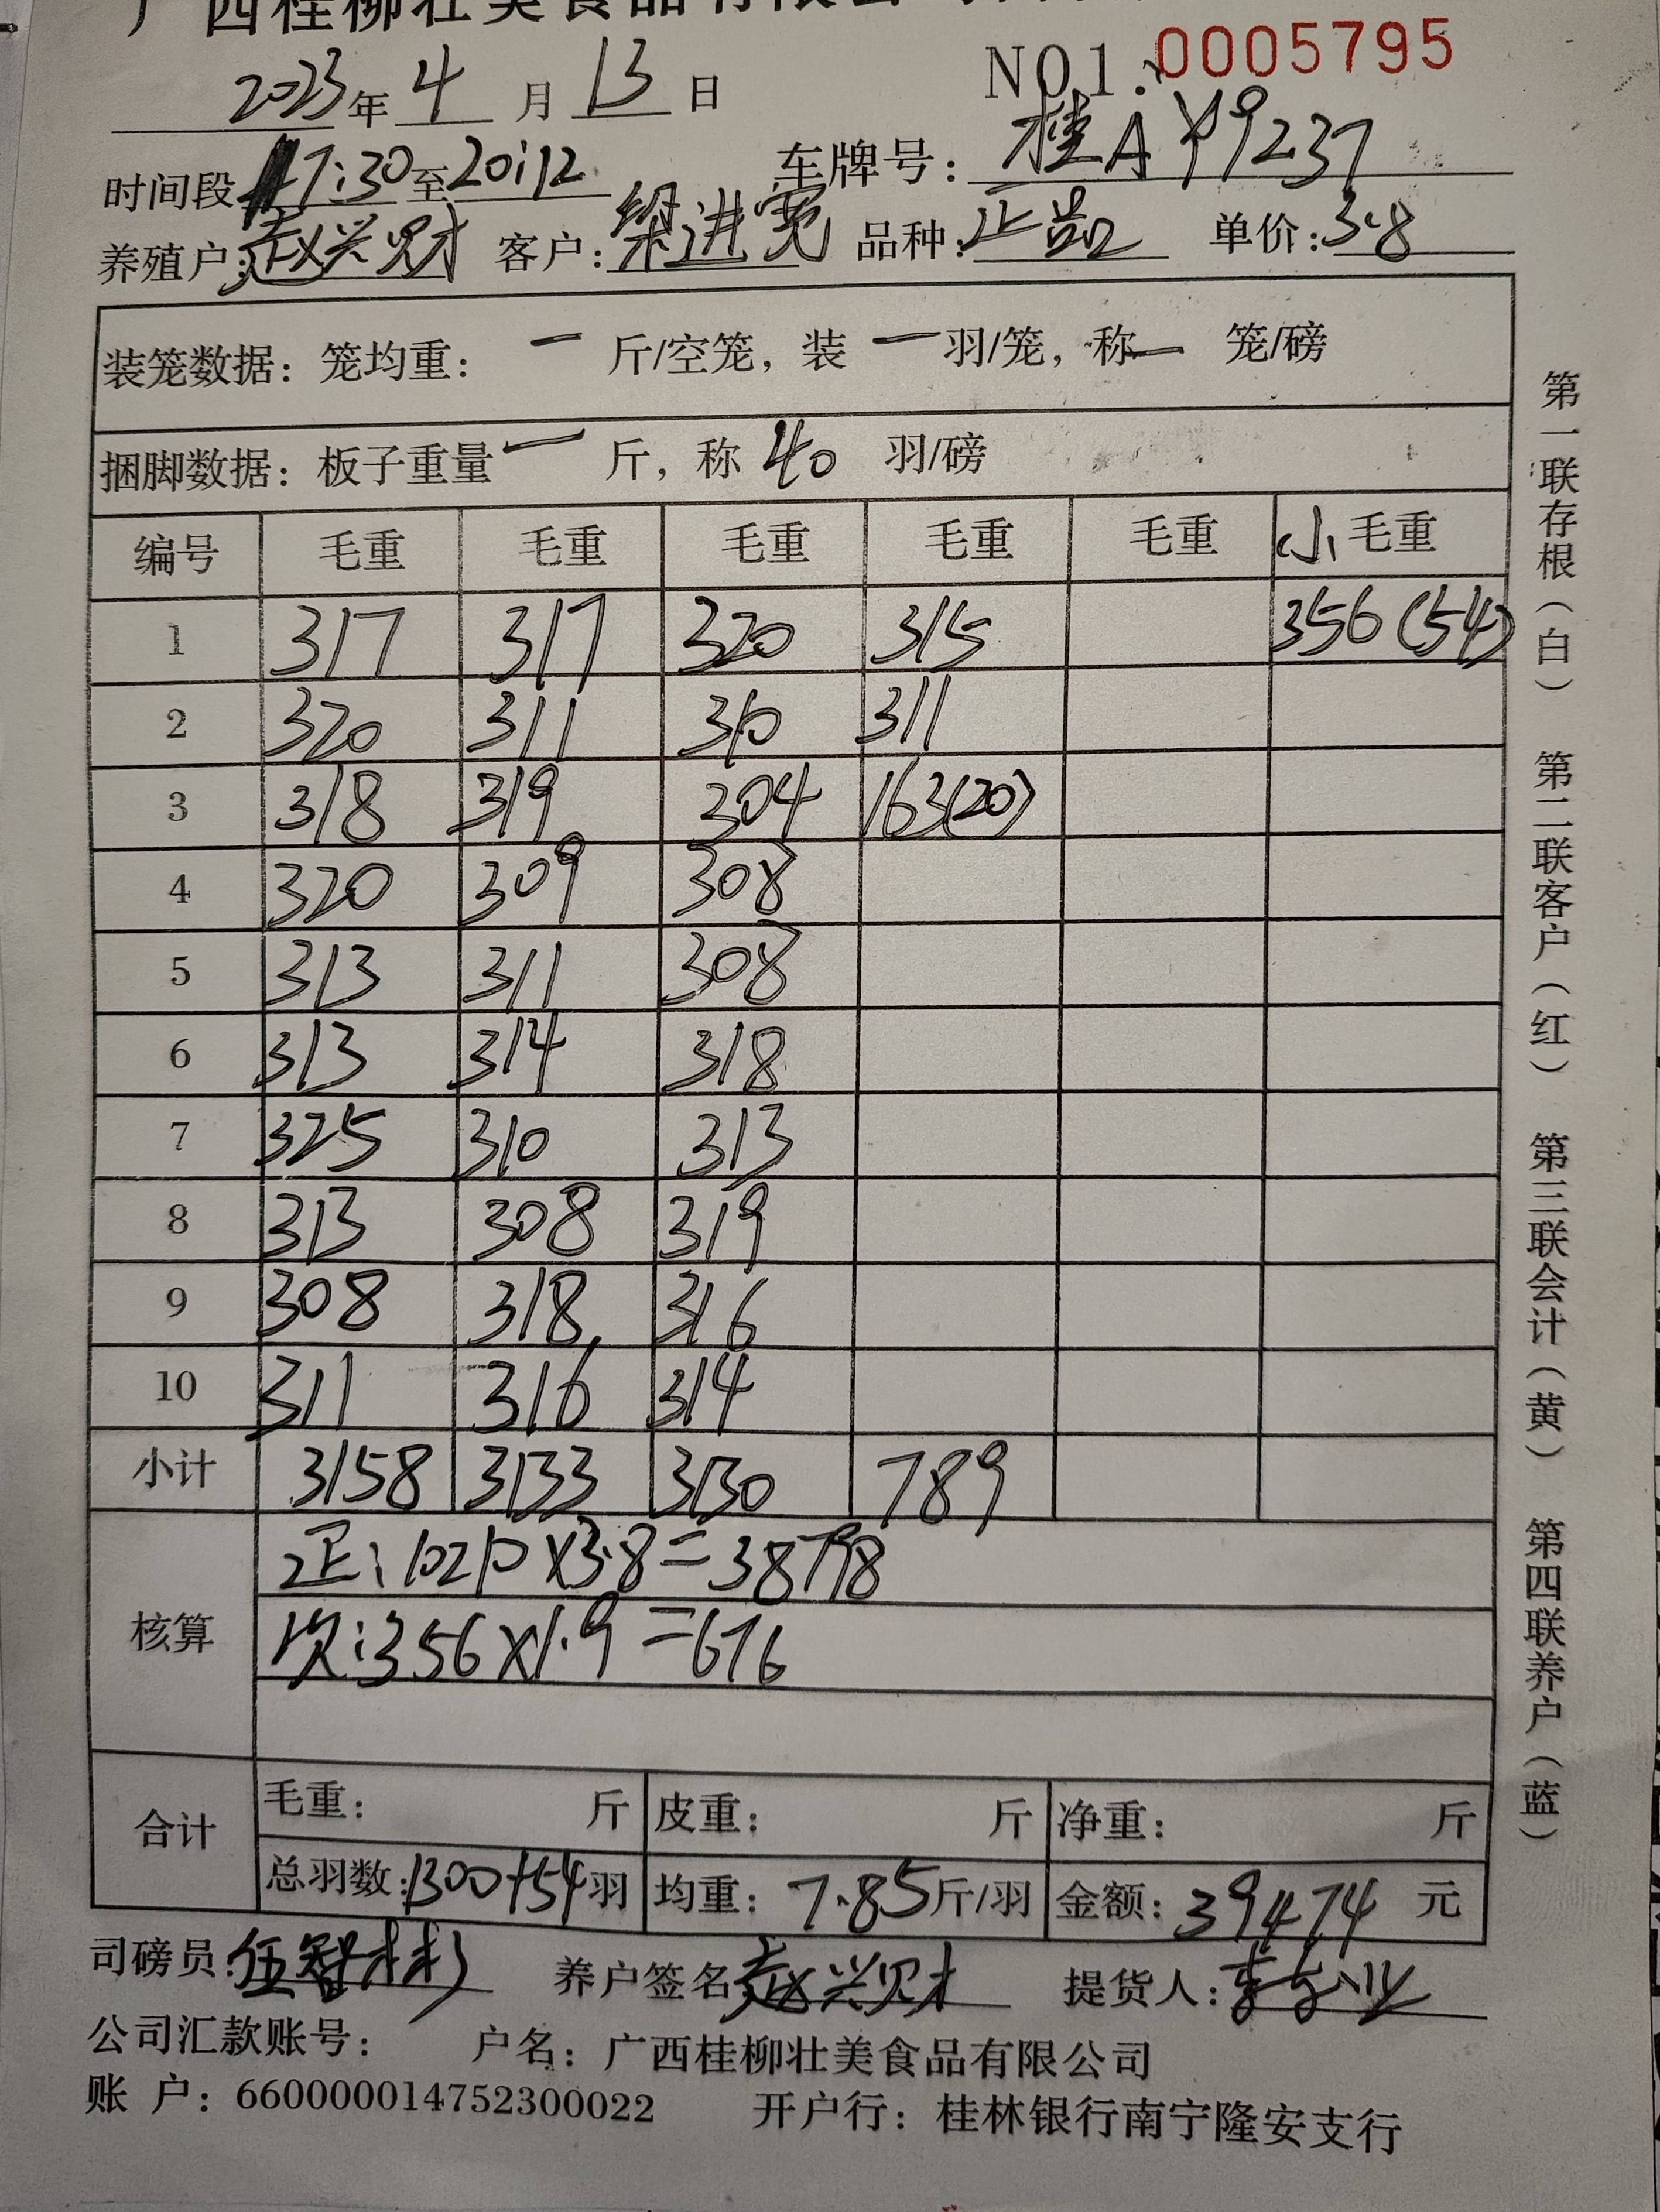 广西桂柳壮美食品有限公司
2023年4月13日 NO1.0005795
时间段17:30至20:12 车牌号：桂AY9237
养殖户：赵兴财 客户：梁进宽 品种：正品 单价：3.8
装笼数据：笼均重：一斤/空笼，装一羽/笼，称一笼/磅
捆脚数据：板子重量一斤，称40羽/磅
编号 毛重 毛重 毛重 毛重 毛重 小毛重
1 317 317 320 315 356(54)
2 320 311 310 311
3 318 319 304 163(20)
4 320 309 308
5 313 311 308
6 313 314 318
7 325 310 313
8 313 308 319
9 308 318 316
10 311 316 314
小计 3158 3133 3130 789
核算
正：10210×3.8=38798
次：356×1.9=676
合计
毛重： 斤 皮重： 斤 净重： 斤
总羽数：1300+54羽 均重：7.85斤/羽 金额：39474元
司磅员：伍智彬 养户签名：赵兴财 提货人：
公司汇款账号： 户名：广西桂柳壮美食品有限公司
账 户：660000014752300022 开户行：桂林银行南宁隆安支行
第一联存根（白） 第二联客户（红） 第三联会计（黄） 第四联养户（蓝）